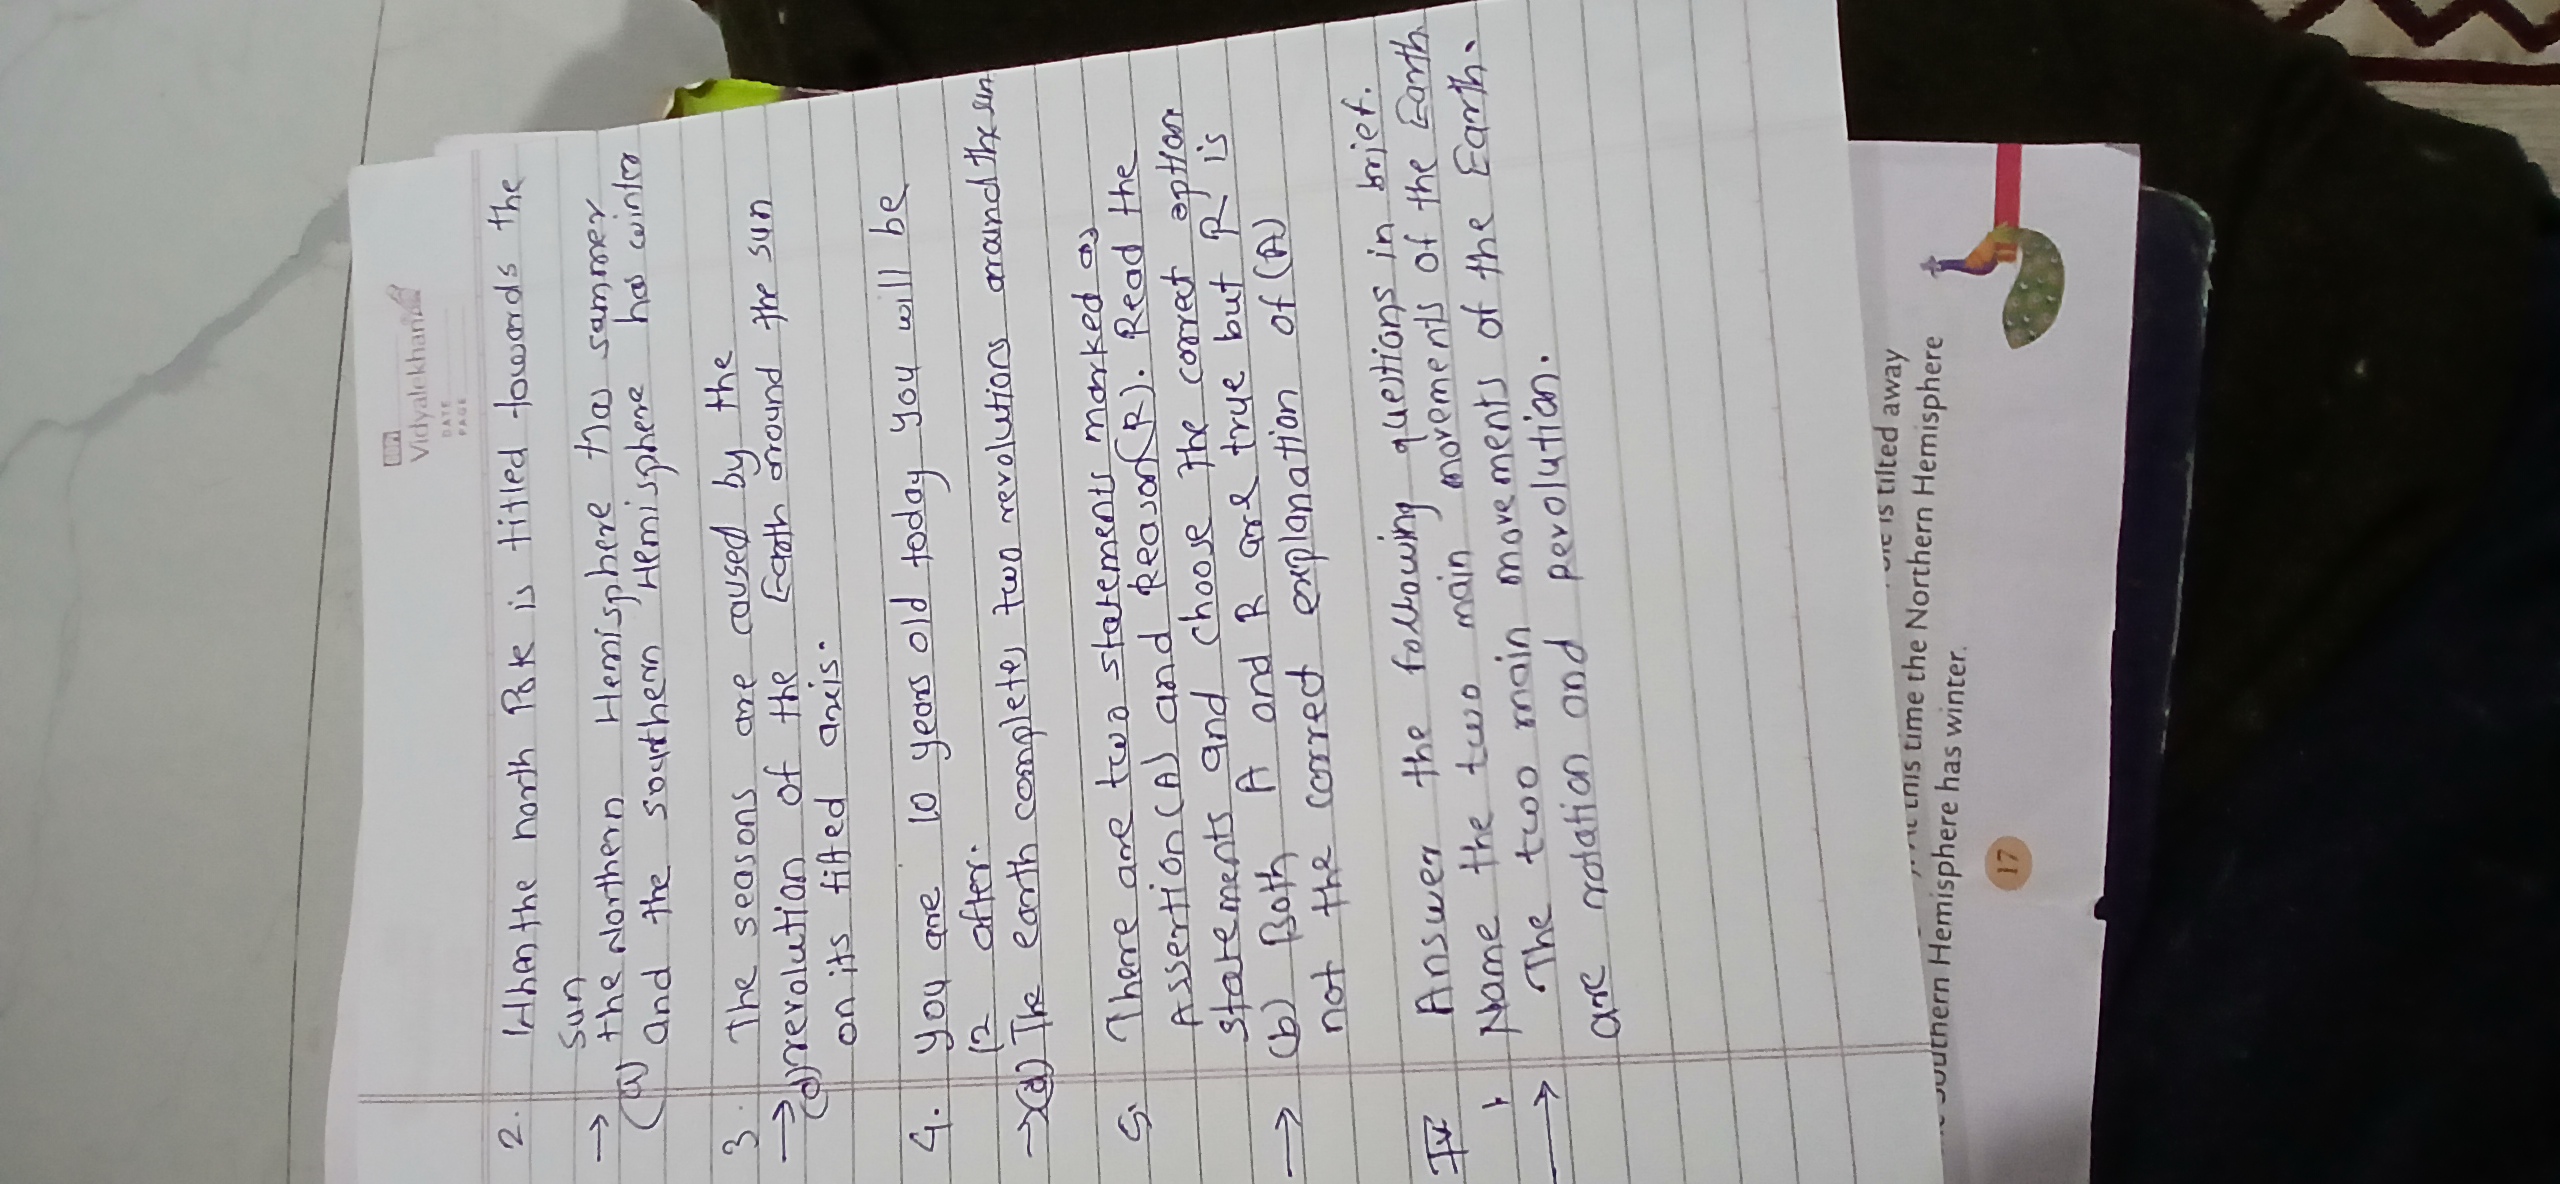 Vidyalekhan
DATE
PAGE
2. When the north Pole is titled towards the
sun
→ the Northern Hemisphere has sammer
(a) and the southern Hemisphere has winter
3. The seasons are caused by the
→ (d) revolution of the Earth around the sun
on its tilted axis.
4. you are 10 years old today you will be
12 after.
→ (d) The earth completes two revolutions around the sun
5. There are two statements marked as
Assertion (A) and Reason (R). Read the
statements and choose the correct option
→ (b) Both A and R are true but R is
not the correct explanation of (A)
IV Answer the following questions in brief.
1 Name the two main movements of the Earth
→ The two main movements of the Earth.
are rotation and revolution.
is tilted away
this time the Northern Hemisphere
Southern Hemisphere has winter.
17